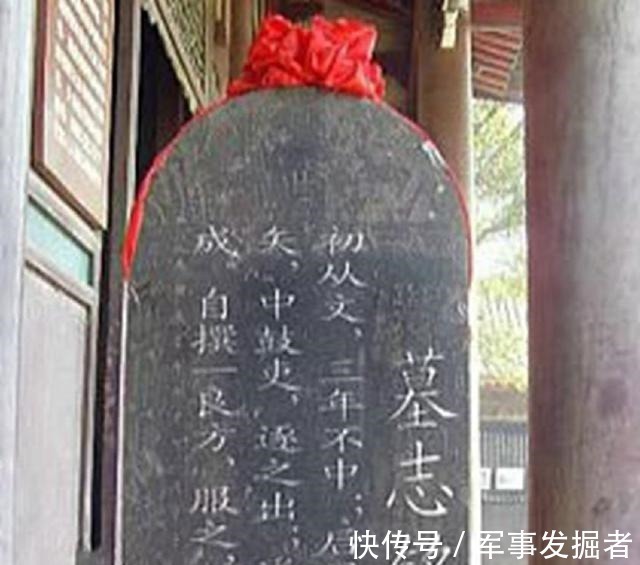 墓志
初从文，三年不中；
矢，中鼓吏，逐之出；
成，自撰一良方、服之，
快传号 / 军事发掘者